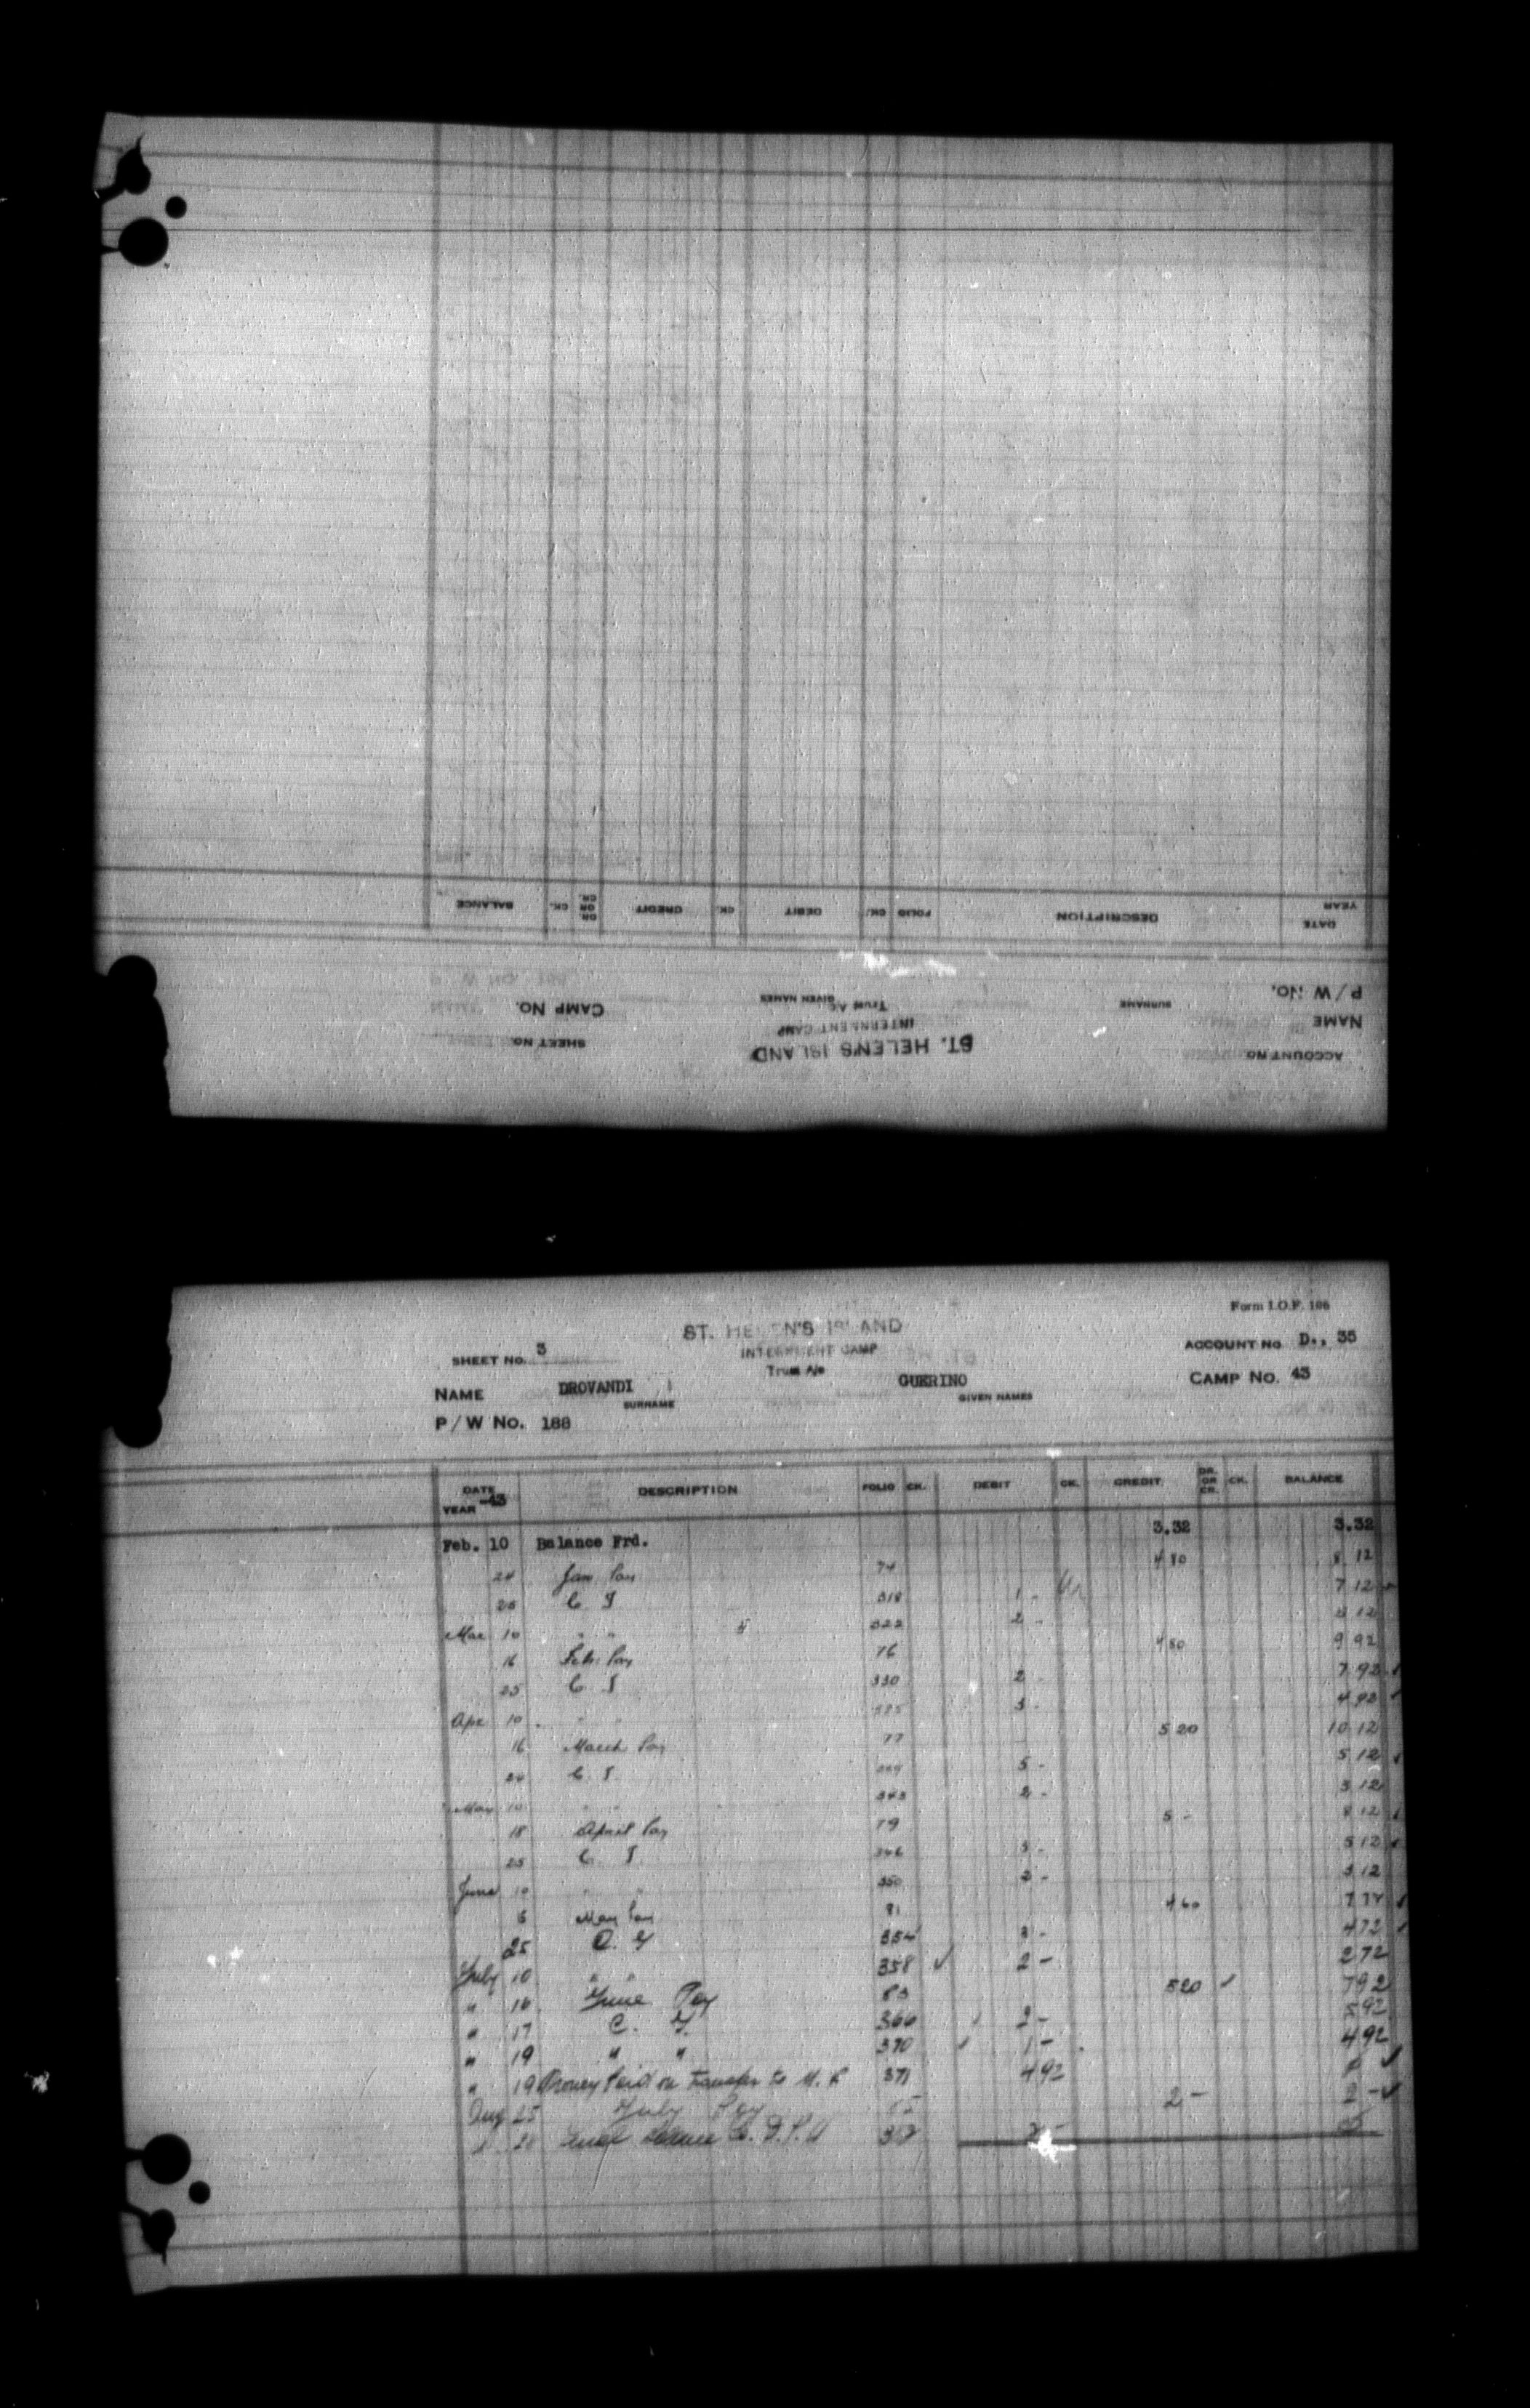 BALANCE CK. DR. OR CR. CREDIT CK. DEBIT CK. FOLIO DESCRIPTION DATE YEAR
CAMP NO. GIVEN NAMES SURNAME P/W NO.
Trust A/c
INTERNMENT CAMP NAME
SHEET NO. ST. HELEN'S ISLAND ACCOUNT NO
Form I.O.F. 106
ST. HELEN'S ISLAND
SHEET NO. 3 INTERNMENT CAMP ACCOUNT NO D., 35
Trust A/c
NAME DROVANDI GUERINO CAMP NO. 43
SURNAME GIVEN NAMES
P/W NO. 188
DATE YEAR -43 DESCRIPTION FOLIO CK. DEBIT CK. CREDIT DR. OR CR. CK. BALANCE
Feb. 10 Balance Frd. 3.32 3.32
24 Jan. Pay 74 4 80 8 12
25 C. T 318 1 - 7 12
Mar 10 " " 322 2 - 5 12
16 Feb. Pay 76 4 80 9 92
25 C T 330 2 - 7 92
Apr 10 " " 3 - 4 92
16 March Pay 77 5 20 10 12
24 C. T. 5 - 5 12
May 10 " " 343 2 - 3 12
18 April Pay 79 5 - 8 12
25 C. T. 346 3 - 5 12
June 10 " " 350 2 - 3 12
May Pay 81 4 60
25 C. T 354 3 - 4 72
July 10 " " 358 ✓ 2 - 2 72
" 16 June Pay 83 5 20 ✓ 7 92
" 17 C. T. 366 2 - 5 92
" 19 " " 370 1 - 4 92
" 19 Money Paid on transfer to 371 4 92
Aug 25 July Pay 2 - 2 - ✓
" 28 2 -